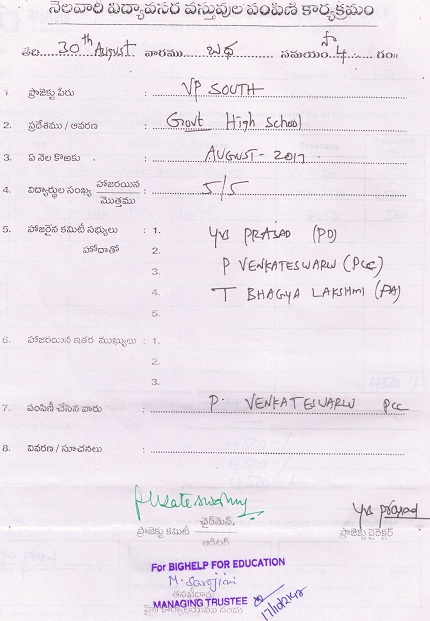 నెలవారి విద్యావసర వస్తువుల పంపిణి కార్యక్రమం
తేది 30th August వారము బుధ సమయం సా 4 గం॥
1. ప్రాజెక్టు పేరు : VP SOUTH
2. ప్రదేశము / ఆవరణ : Govt High School
3. ఏ నెల కొఱకు : AUGUST - 2017
4. విద్యార్థుల సంఖ్య హాజరయిన / మొత్తము : 5/5
5. హాజరైన కమిటీ సభ్యులు : 1. YVS PRASAD (PD)
హోదాతో 2.
3. P VENKATESWARLU (PCC)
4. T BHAGYA LAKSHMI (PA)
5.
6. హాజరయిన ఇతర ముఖ్యులు : 1.
2.
3.
7. పంపిణీ చేసిన వారు : P. VENKATESWARLU PCC
8. వివరణ / సూచనలు :
yvs prasad
ప్రాజెక్టు కమిటీ ఛైర్మెన్. ప్రాజెక్టు డైరెక్టర్
ఆడిటర్
For BIGHELP FOR EDUCATION
M. Sarojini
MANAGING TRUSTEE